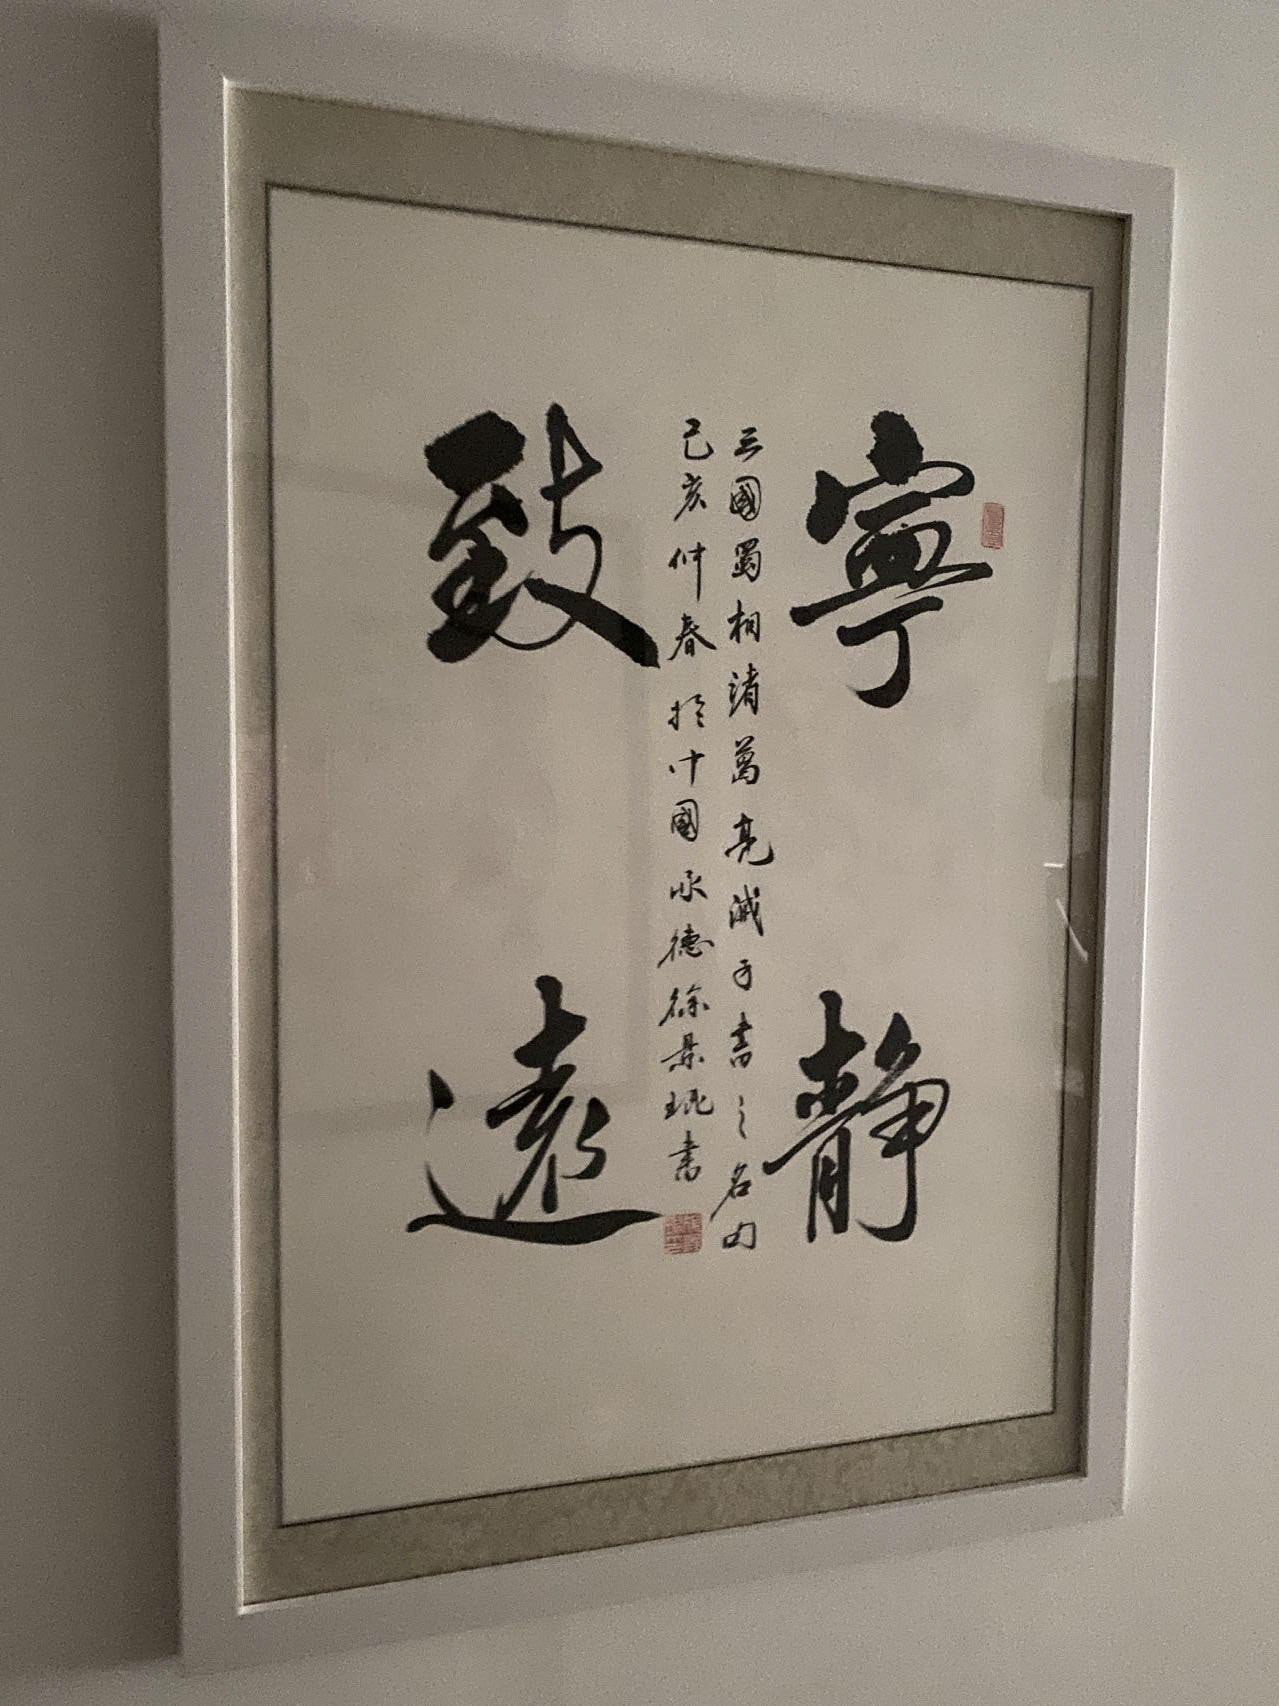 寧靜
三國蜀相諸葛亮誡子書之名句
己亥仲春於中國承德徐景琨書
致遠